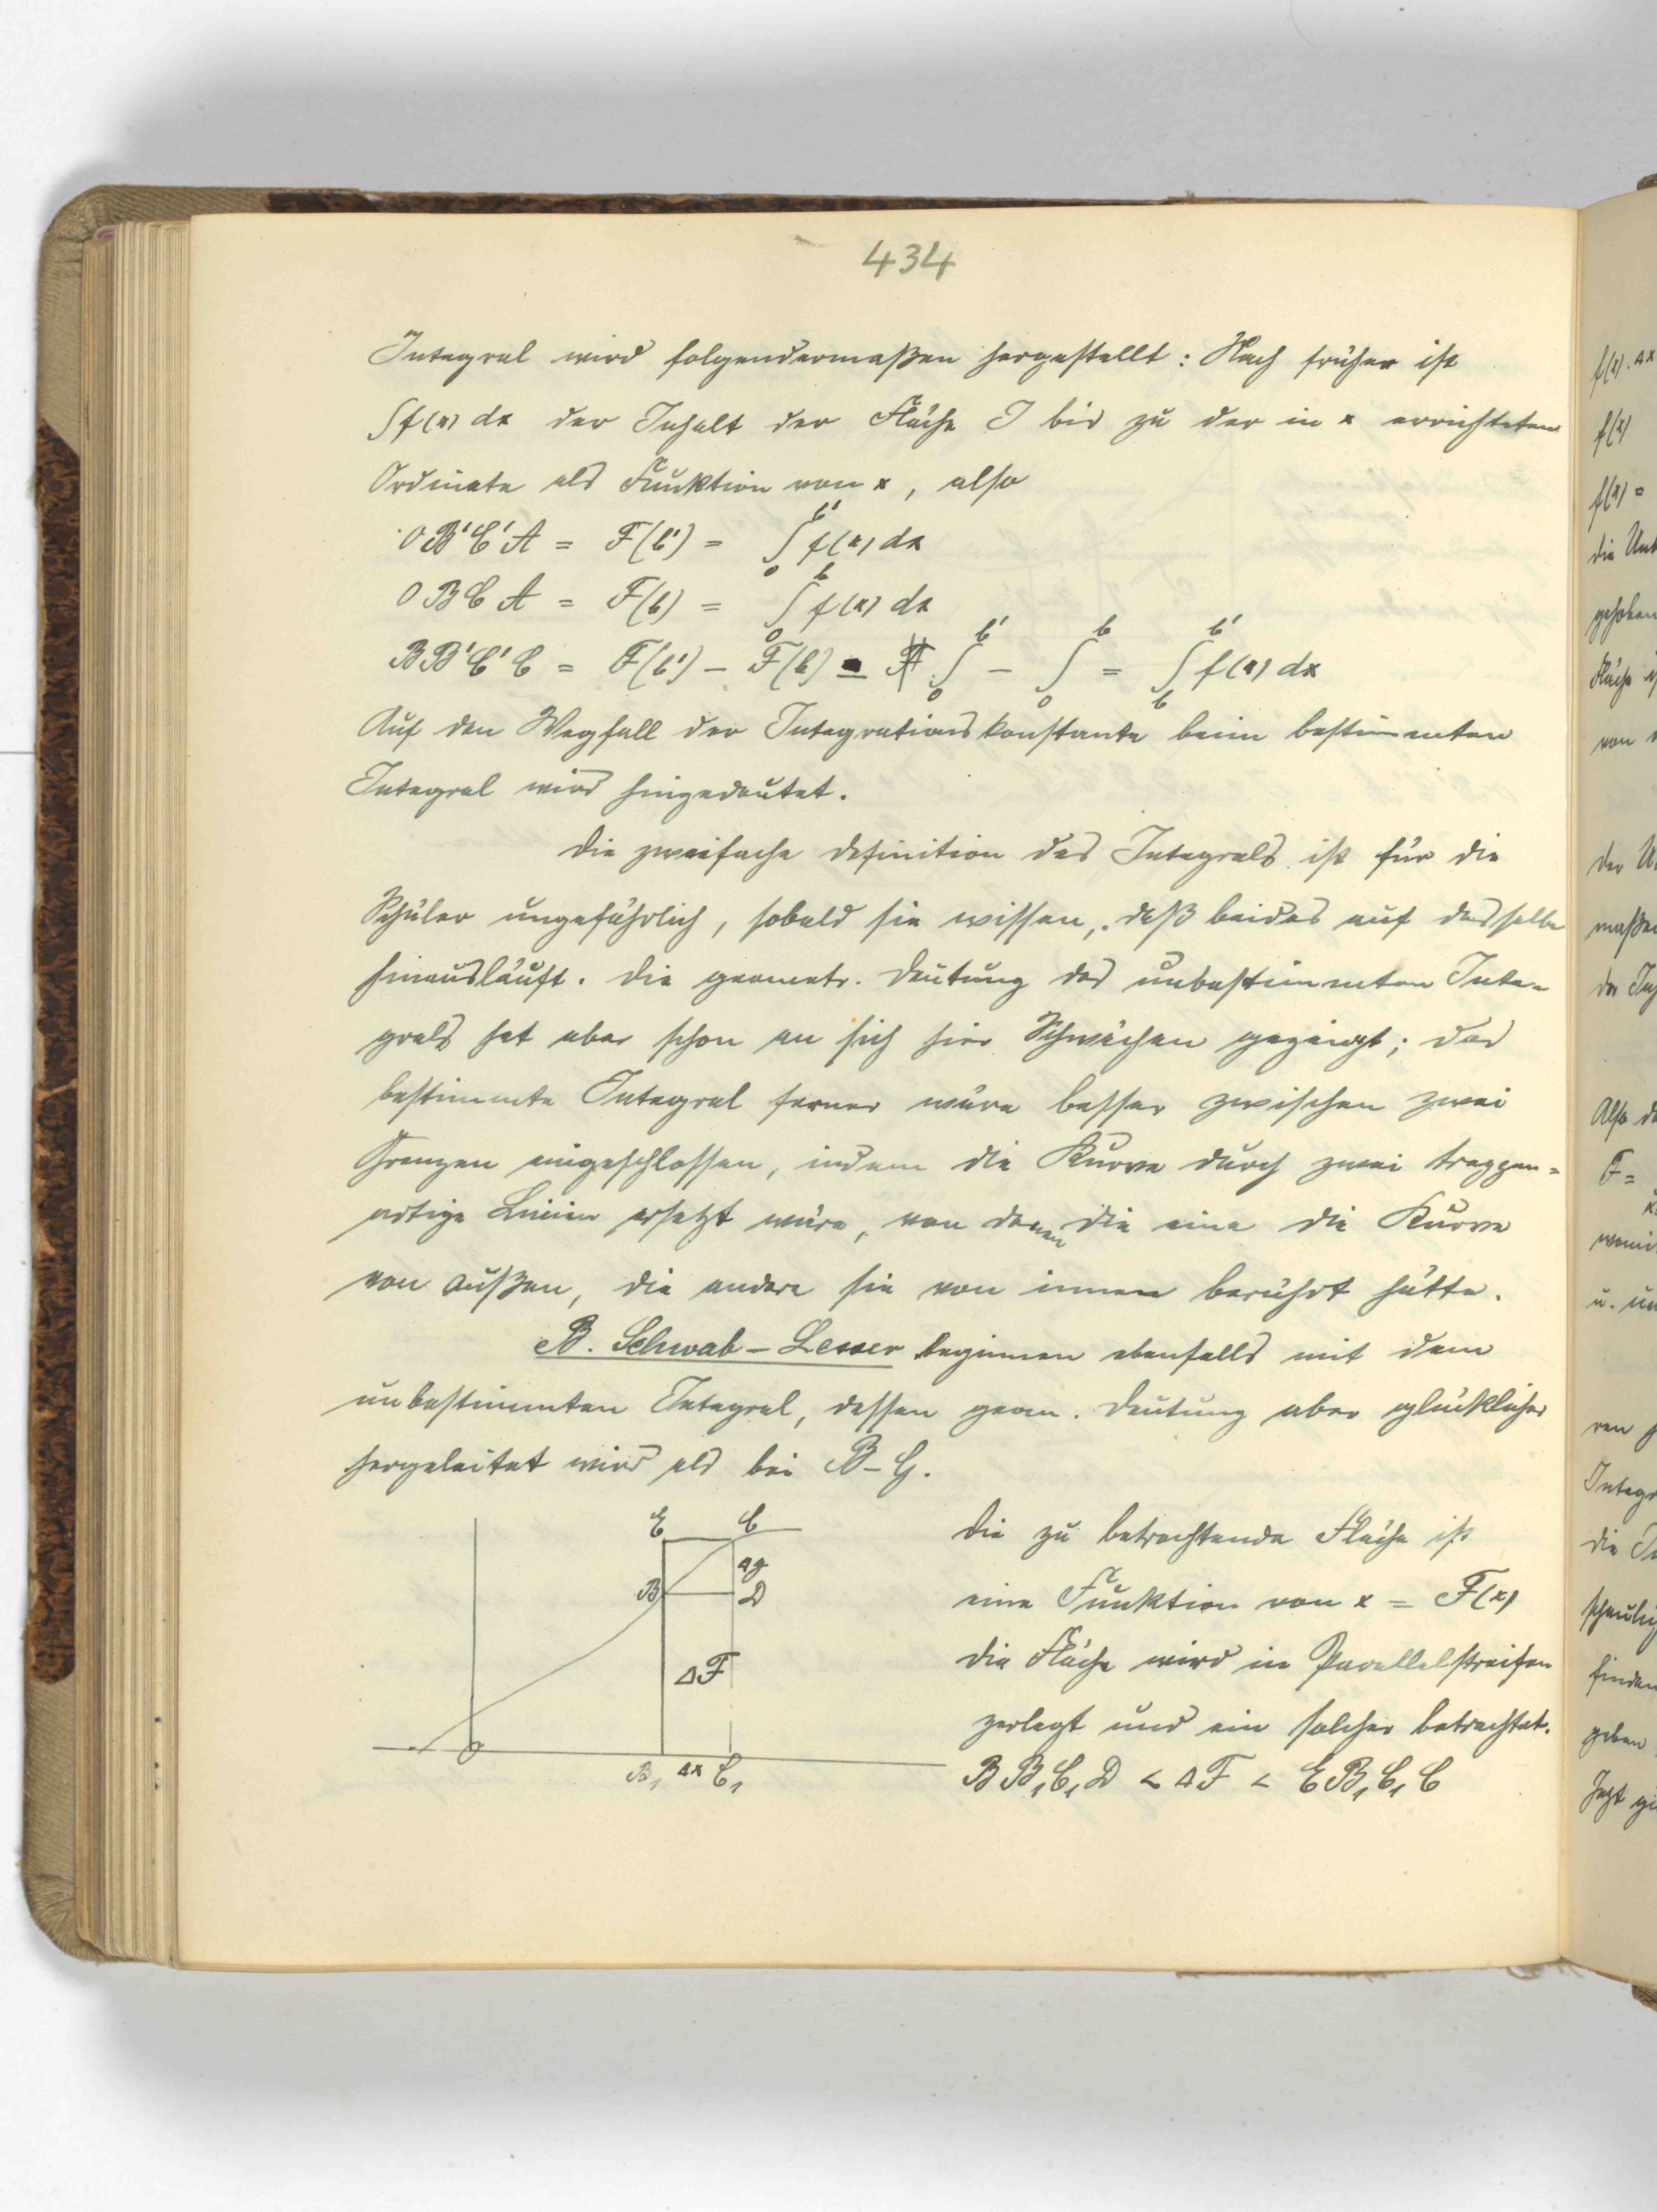 434
Integral wird folgendermaßen hergestellt: Nach früher ist
∫f(x) dx der Inhalt der Fläche J bis zu der in x errichteten
Ordinate als Funktion von x, also
OB'C'A = F(b') = ∫₀ᵇ' f(x) dx
OBCA = F(b) = ∫₀ᵇ f(x) dx
BB'C'C = F(b') – F(b) = ∫₀ᵇ' – ∫₀ᵇ = ∫_b^b' f(x) dx
Auf den Wegfall der Integrationskonstante beim bestimmten
Integral wird hingedeutet.
Die zweifache Definition des Integrals ist für die
Schüler ungefährlich, sobald sie wissen, daß beides auf dasselbe
hinausläuft. Die geometr. Deutung des unbestimmten Inte-
grals hat aber schon an sich hier Schwächen gezeigt; das
bestimmte Integral ferner wäre besser zwischen zwei
Grenzen eingeschlossen, indem die Kurve durch zwei treppen-
artige Linien ersetzt wäre, von denen die eine die Kurve
von außen, die andere sie von innen berührt hätte.
B. Schwab – Lesser beginnen ebenfalls mit dem
unbestimmten Integral, dessen geom. Deutung aber glücklicher
hergeleitet wird als bei B–G.
E C
Δy
B D
ΔF
O
B₁ Δx C₁
Die zu betrachtende Fläche ist
eine Funktion von x = F(x)
Die Fläche wird in Parallelstreifen
zerlegt und ein solcher betrachtet.
BB₁C₁D < ΔF < EB₁C₁C
f(x).Δx
f(x)
f(x) =
die
gehoben
Fläche
von
der
maßen
der
Also
F =
u.
ren
die
finden
geben
Jetzt